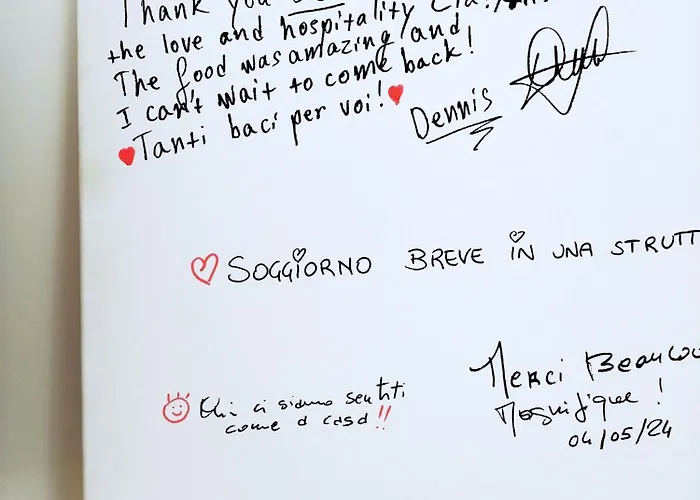 Thank you
the love and hospitality
The food was amazing and
I can't wait to come back!
Tanti baci per voi!
Dennis
SOGGIORNO BREVE IN UNA STRUTT
Merci Beaucou
Magnifique !
04/05/24
ci siamo sentiti
come a casa!!